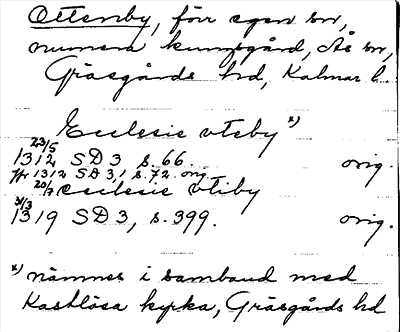 Ottenby, förr egen sn,
numera kungsgård, Ås sn,
Gräsgårds hd, Kalmar l.
Ecclesie vteby x)
23/5
1312 SD 3 s. 66. orig.
1312 SD 3, 1 s. 72. orig.
20/7 ecclesie vtiby
31/3
1319 SD 3, s. 399. orig.
x) nämnes i samband med
Kastlösa kyrka, Gräsgårds hd